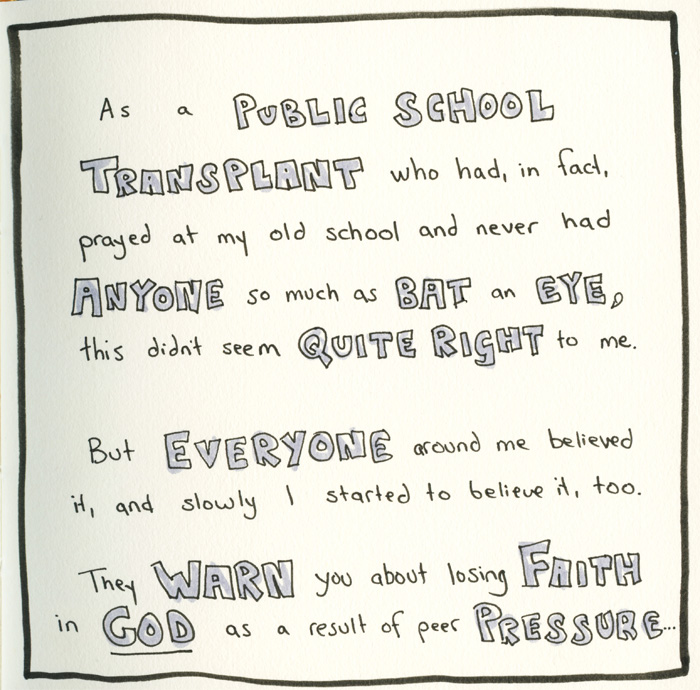 As a PUBLIC SCHOOL
TRANSPLANT who had, in fact,
prayed at my old school and never had
ANYONE so much as BAT an EYE,
this didn't seem QUITE RIGHT to me.
But EVERYONE around me believed
it, and slowly I started to believe it, too.
They WARN you about losing FAITH
in GOD as a result of peer PRESSURE...